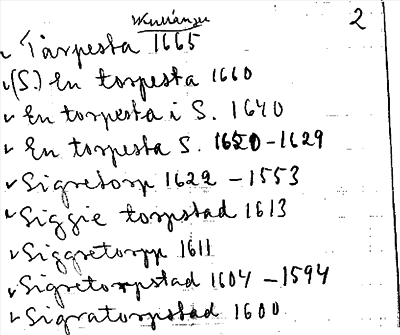 2
Tarpesta 1665
(S.) En torpesta 1660
En torpesta i S. 1640
En torpesta S. 1650-1629
Sigretorp 1622 - 1553
Siggie torpstad 1613
Siggretorpp 1611
Sigretorpstad 1604 - 1594
Sigratorpstad 1600